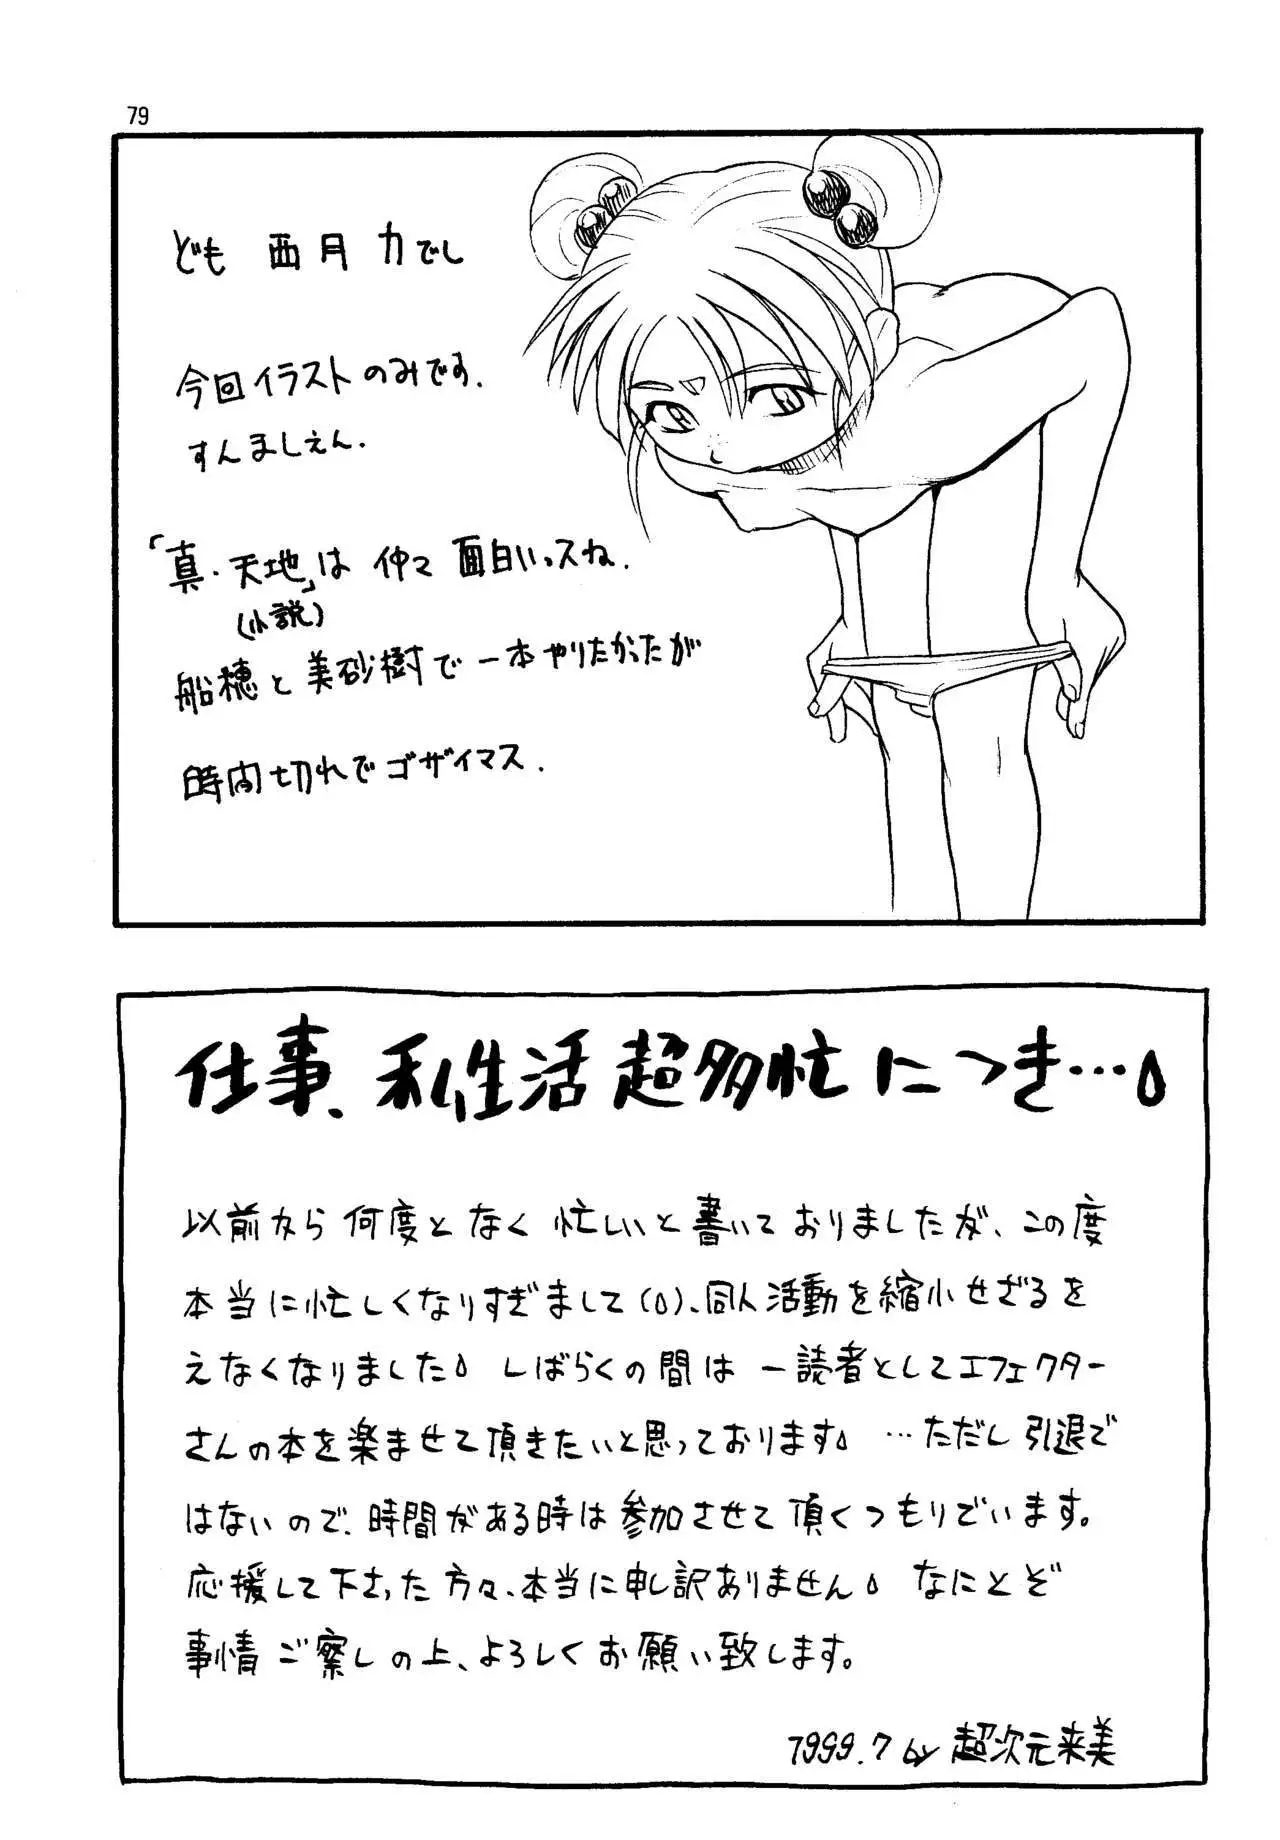 79
ども 西月 力でし
今回イラストのみです.
すんましえん.
「真・天地」は 仲々 面白いっスね.
(小説)
船穂と美砂樹で一本やりたかったが
時間切れでゴザイマス.
仕事、私生活超多忙につき…
以前から何度となく忙しいと書いておりましたが、この度
本当に忙しくなりすぎまして()、同人活動を縮小せざるを
えなくなりました しばらくの間は一読者としてエフェクター
さんの本を楽ませて頂きたいと思っております …ただし引退で
はないので、時間がある時は参加させて頂くつもりでいます。
応援して下さった方々、本当に申し訳ありません なにとぞ
事情ご察しの上、よろしくお願い致します。
1999.7 by 超次元来美